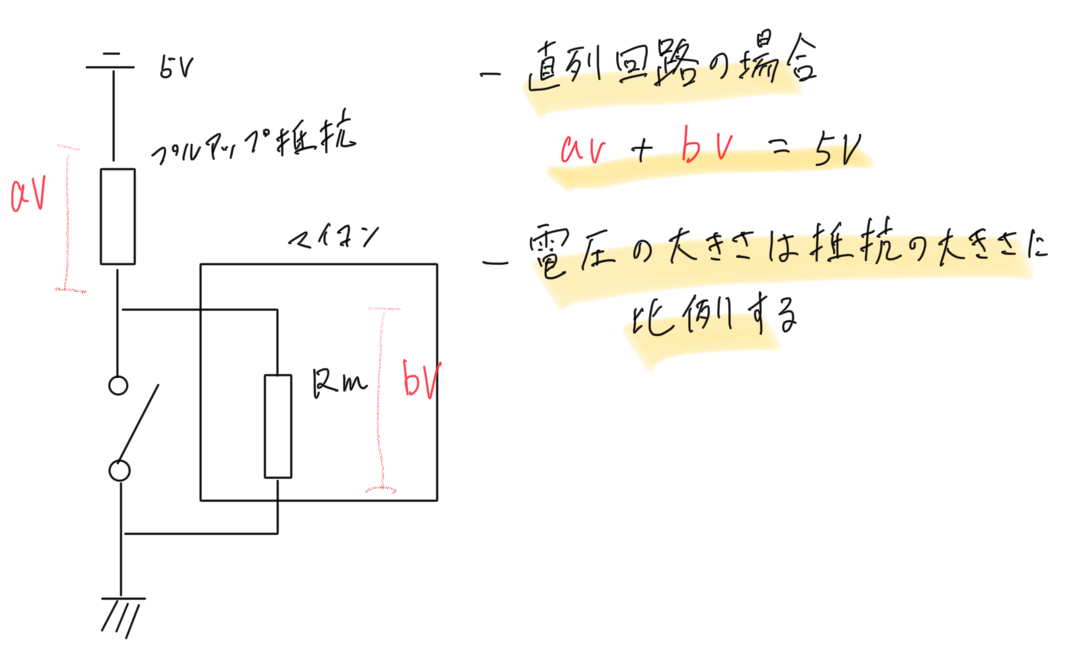 5V
プルアップ抵抗
aV
マイコン
Rm
bV
- 直列回路の場合
aV + bV = 5V
- 電圧の大きさは抵抗の大きさに
比例する